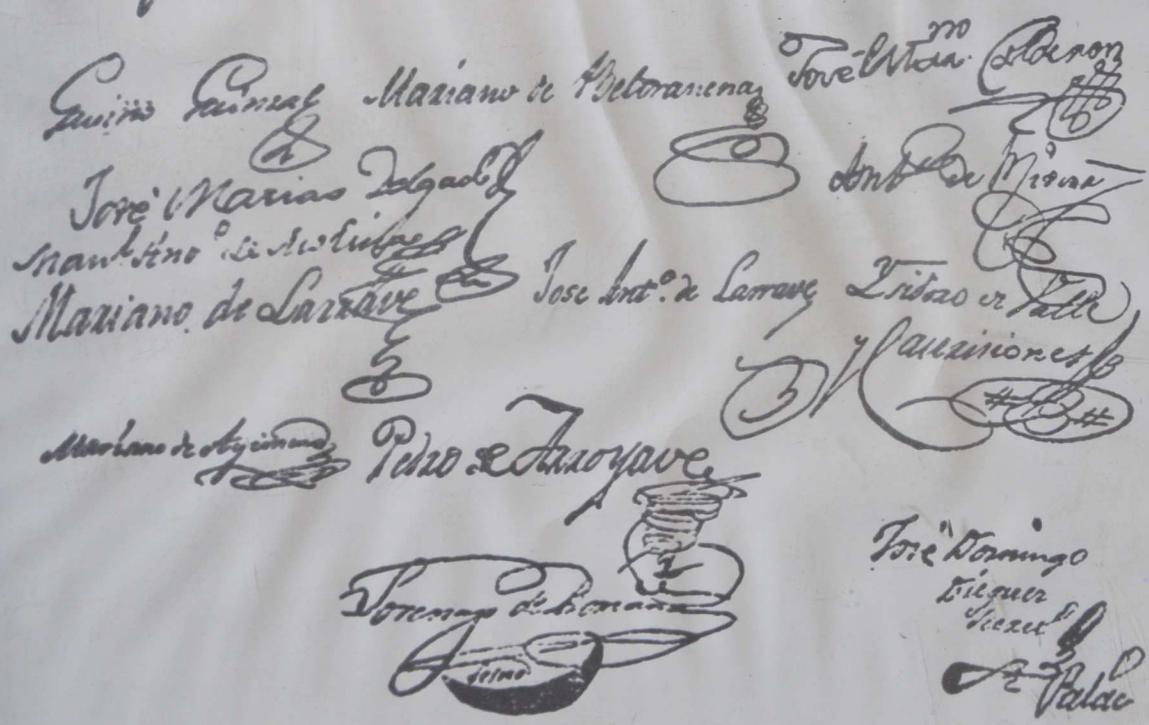 Gavino Gainza
Mariano de Beltranena
José Mar. Calderon
José Matias Delgado
Manl. Anto. de Molina
Anto. de Rivera
Mariano de Larrave
José Anto. de Larrave
Ysidro de Valle
y Castriciones
Mariano de Aycinena
Pedro de Arroyave
Lorenzo de Romaña
Secrio
José Domingo
Dieguez
Secret
Palac